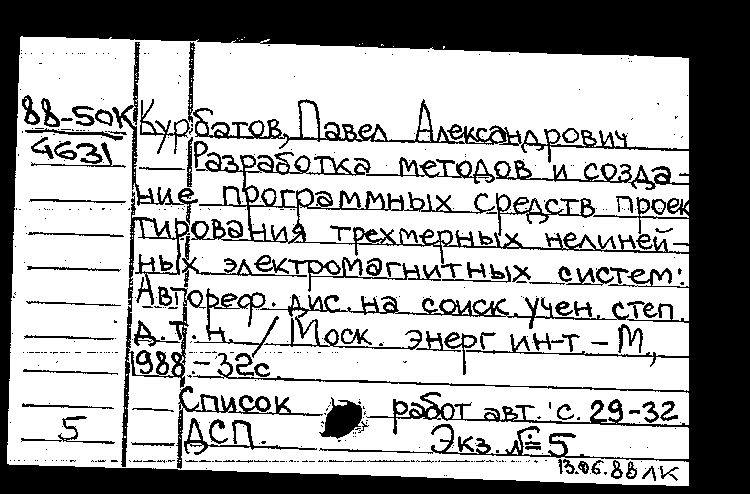 88-50К Курбатов, Павел Александрович
4631 Разработка методов и созда-
ние программных средств проек
тирования трехмерных нелиней-
ных электромагнитных систем:
Автореф. дис. на соиск. учен. степ.
д.т.н. / Моск. энерг ин-т. - М.,
1988. - 32с.
Список работ авт.: с. 29-32.
5 ДСП. Экз. №5.
13.06.88 ЛК